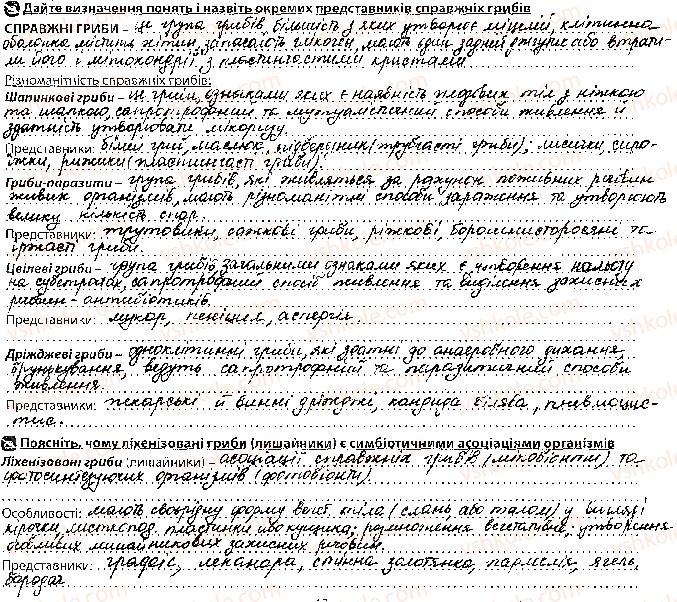 Дайте визначення понять і назвіть окремих представників справжніх грибів
СПРАВЖНІ ГРИБИ – це група грибів, більшість з яких утворює міцелій, клітинна
оболонка містить хітин, запасають глікоген, мають один задній джгутик або втрати-
ли його і мітохондрії з пластинчастими кристами.
Різноманітність справжніх грибів:
Шапинкові гриби – це гриби, ознаками яких є наявність плодових тіл з ніжкою
та шапкою, сапротрофний та мутуалістичний способи живлення й
здатність утворювати мікоризу.
Представники: білий гриб, маслюк, підберезник (трубчасті гриби); лисички, сиро-
їжки, рижики (пластинчасті гриби).
Гриби-паразити – група грибів, які живляться за рахунок поживних речовин
живих організмів, мають різноманітні способи зараження та утворюють
велику кількість спор.
Представники: трутовики, сажкові гриби, ріжкові, борошнисторосяні та
іржасті гриби.
Цвілеві гриби – група грибів, загальними ознаками яких є утворення нальоту
на субстратах, сапротрофний спосіб живлення та виділення захисних
речовин – антибіотиків.
Представники: мукор, пеніцил, аспергіл.
Дріжджеві гриби – одноклітинні гриби, які здатні до анаеробного дихання,
брунькування, ведуть сапротрофний та паразитичний способи
живлення.
Представники: пекарські й винні дріжджі, кандида білява, пневмоцис-
тис.
Поясніть, чому ліхенізовані гриби (лишайники) є симбіотичними асоціаціями організмів
Ліхенізовані гриби (лишайники) – асоціації справжніх грибів (мікобіонти) та
фотосинтезуючих організмів (фотобіонти).
Особливості: мають своєрідну форму вегет. тіла (слань або талом) у вигляді
кірочки, листкопод. пластинки або кущика; розмноження вегетативне; утворення
особливих лишайникових захисних речовин.
Представники: графіс, леканора, стінна золотянка, пармелія, ягель,
бородач